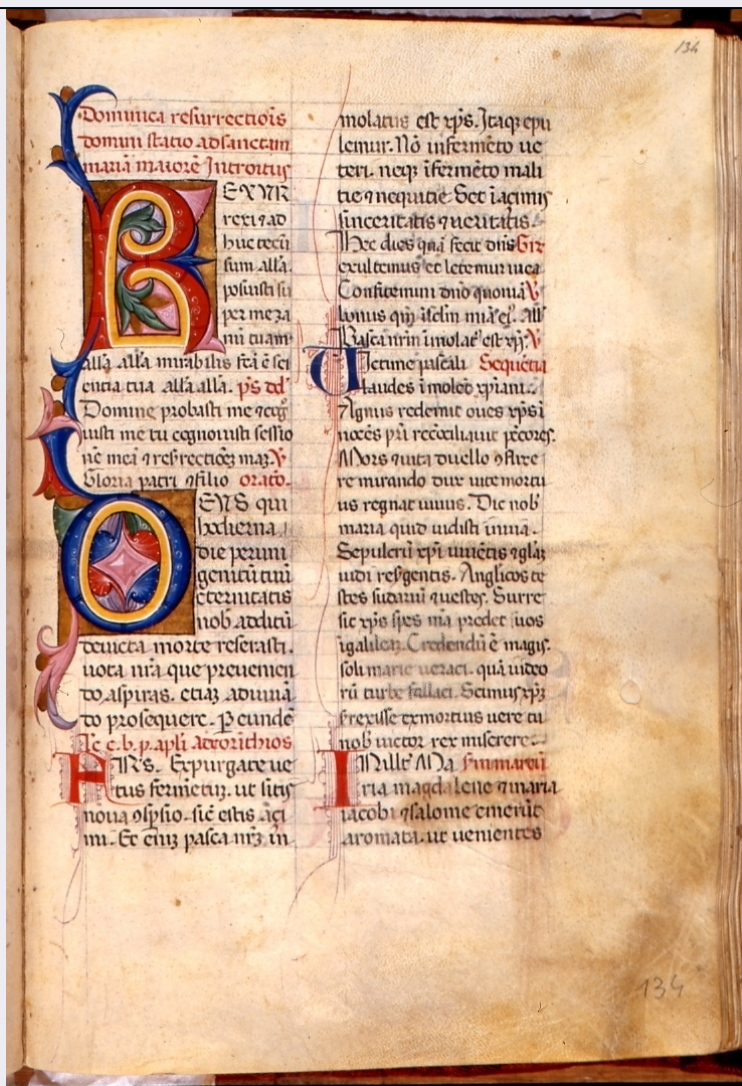 134
Dominica resurrectiõis
domini statio ad sanctam
mariã maiorẽ Introitus
R ESVR
rexi ⁊ ad
huc tecũ
sum alla.
posuisti su
per me ma
nũ tuam
alla alla mirabilis fc̃a ẽ sci
entia tua alla alla. p̃s dd
Domine probasti me ⁊ cog
uisti me tu cognouisti sessio
nẽ meã ⁊ resrectioeꝫ meaꝫ. V
Gloria patri ⁊ filio orato.
DEVS qui
hodierna
die per uni
genitũ tuũ
eternitatis
nob additũ
deuicta morte reserasti.
uota nr̃a que preuenien
do aspiras. etiaꝫ adiuuã
do prosequere. P eundẽ
Lc̃ e. b. p. apl̃i ad corithios
FRẼS. Expurgate ue
tus fermẽtuꝫ. ut sitis
noua ↄspsio. sic̃ estis açi
mi. Et eniꝫ pasca nr̃ꝫ in
molatus est xp̃s. Itaqꝫ epu
lemur. Nõ in fermẽto ue
teri. neqꝫ ĩ fermẽto mali
tie ⁊ nequitie. Set ĩ açimis
sinceritatis ⁊ ueritatis.
Hec dies quã fecit dñs Gr̃
exultemus et letemur in ea
Confitemini dño quoniã V
bonus qm̃ ĩ sc̃lm mĩa ei. All
Pasca nr̃m ĩmolat᾿ est xp̃s. V
Uictime pascali Sequẽtia
laudes ĩmolẽt xp̃iani.
Agnus redemit oues xp̃s ĩ
nocẽs pr̃i recõciliauit pc̃cores.
Mors ⁊ uita duello ↄflixe
re mirando dux uite mortu
us regnat uiuus. Dic nob᾿
maria quid uidisti in uia.
Sepulcrũ xp̃i uiuẽtis ⁊ gl̃aꝫ
uidi resgentis. Anglicos te
stes sudariũ ⁊ uestes. Surre
sit xp̃s spes m̃a predet uos
ĩ galileaꝫ. Credendũ ẽ magis.
soli marie ueraci. quã iudeo
rũ turbe fallaci. Scimus xp̃ꝫ
srexisse ex mortuis uere tu
nob uictor rex miserere.
INill᾿t᾿ Ma S᾿m marcũ
ria magdalene ⁊ maria
iacobi ⁊ salome emerũt
aromata. ut uenientes
134